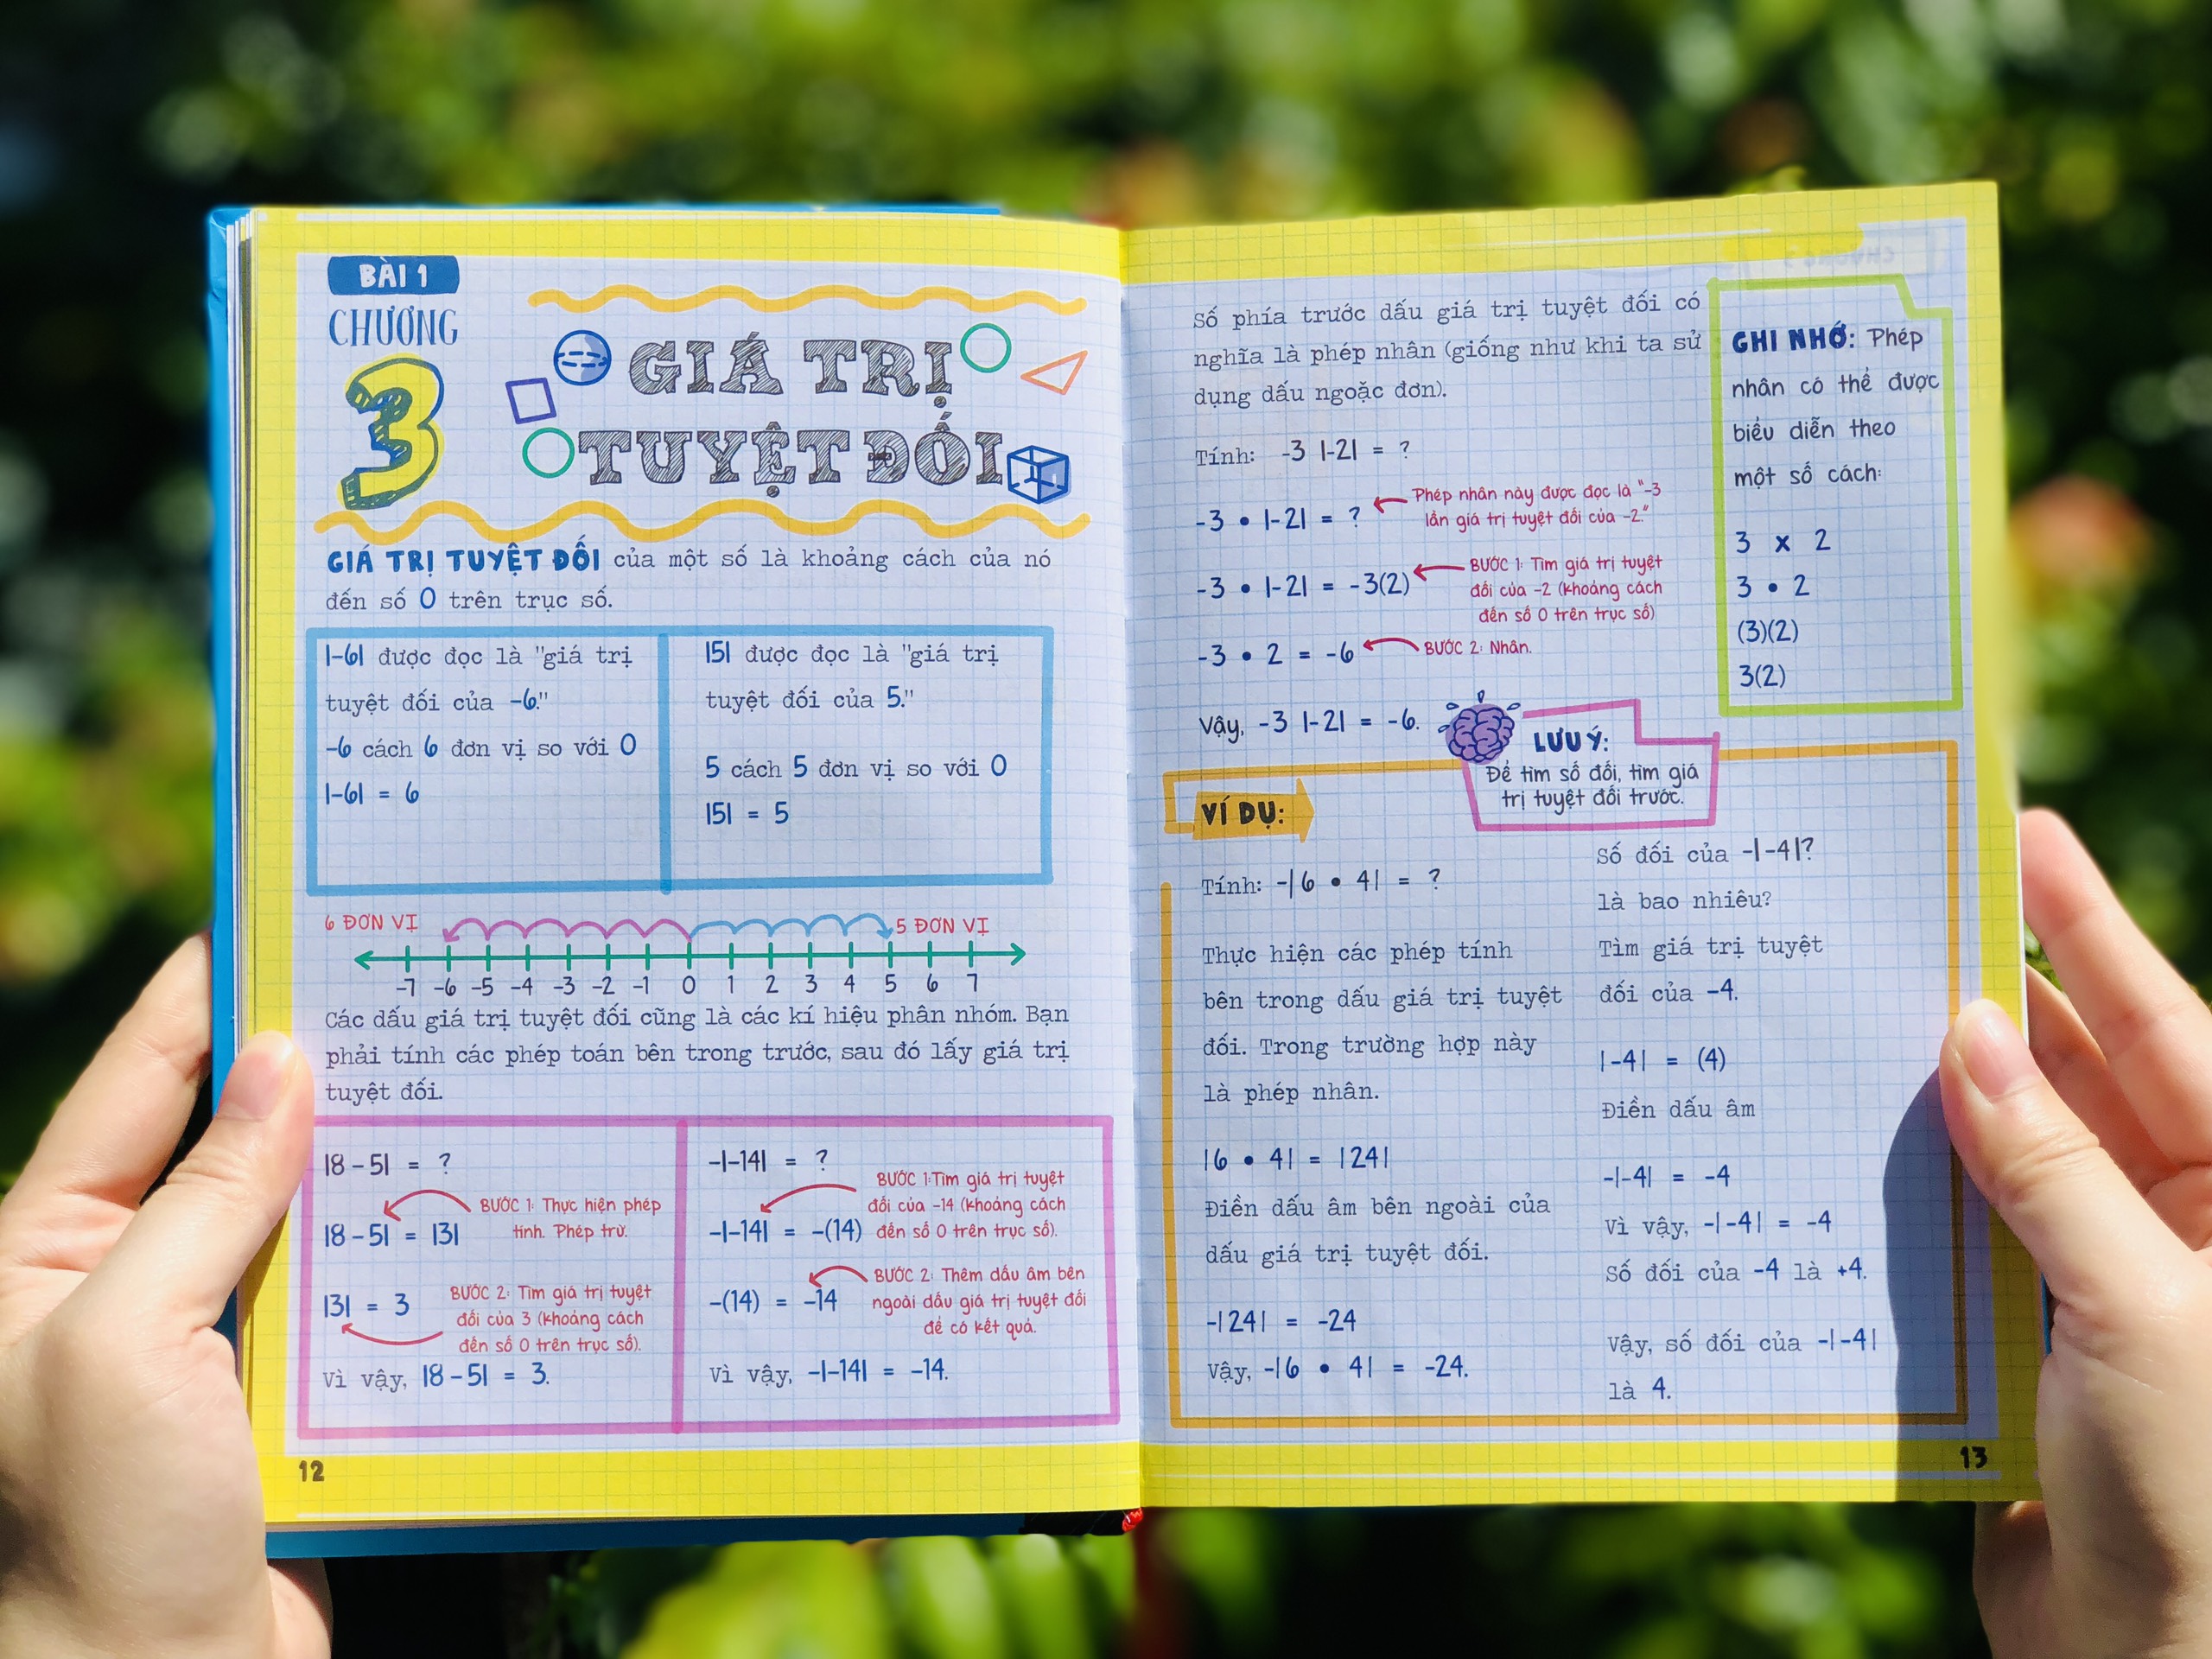 BÀI 1
CHƯƠNG
3
GIÁ TRỊ
TUYỆT ĐỐI
GIÁ TRỊ TUYỆT ĐỐI của một số là khoảng cách của nó
đến số 0 trên trục số.
|-6| được đọc là "giá trị
tuyệt đối của -6."
-6 cách 6 đơn vị so với 0
|-6| = 6
|5| được đọc là "giá trị
tuyệt đối của 5."
5 cách 5 đơn vị so với 0
|5| = 5
6 ĐƠN VỊ
5 ĐƠN VỊ
-7 -6 -5 -4 -3 -2 -1 0 1 2 3 4 5 6 7
Các dấu giá trị tuyệt đối cũng là các kí hiệu phân nhóm. Bạn
phải tính các phép toán bên trong trước, sau đó lấy giá trị
tuyệt đối.
|8 - 5| = ?
BƯỚC 1: Thực hiện phép
tính. Phép trừ.
|8 - 5| = |3|
BƯỚC 2: Tìm giá trị tuyệt
đối của 3 (khoảng cách
đến số 0 trên trục số).
|3| = 3
Vì vậy, |8 - 5| = 3.
-|-14| = ?
BƯỚC 1:Tìm giá trị tuyệt
đối của -14 (khoảng cách
đến số 0 trên trục số).
-|-14| = -(14)
BƯỚC 2: Thêm dấu âm bên
ngoài dấu giá trị tuyệt đối
để có kết quả.
-(14) = -14
Vì vậy, -|-14| = -14.
12
Số phía trước dấu giá trị tuyệt đối có
nghĩa là phép nhân (giống như khi ta sử
dụng dấu ngoặc đơn).
Tính: -3 |-2| = ?
-3 • |-2| = ?
Phép nhân này được đọc là "-3
lần giá trị tuyệt đối của -2."
-3 • |-2| = -3(2)
BƯỚC 1: Tìm giá trị tuyệt
đối của -2 (khoảng cách
đến số 0 trên trục số)
-3 • 2 = -6
BƯỚC 2: Nhân.
Vậy, -3 |-2| = -6.
GHI NHỚ: Phép
nhân có thể được
biểu diễn theo
một số cách:
3 x 2
3 • 2
(3)(2)
3(2)
LƯU Ý:
Để tìm số đối, tìm giá
trị tuyệt đối trước.
VÍ DỤ:
Tính: -|6 • 4| = ?
Thực hiện các phép tính
bên trong dấu giá trị tuyệt
đối. Trong trường hợp này
là phép nhân.
|6 • 4| = |24|
Điền dấu âm bên ngoài của
dấu giá trị tuyệt đối.
-|24| = -24
Vậy, -|6 • 4| = -24.
Số đối của -|-4|?
là bao nhiêu?
Tìm giá trị tuyệt
đối của -4.
|-4| = (4)
Điền dấu âm
-|-4| = -4
Vì vậy, -|-4| = -4
Số đối của -4 là +4.
Vậy, số đối của -|-4|
là 4.
13